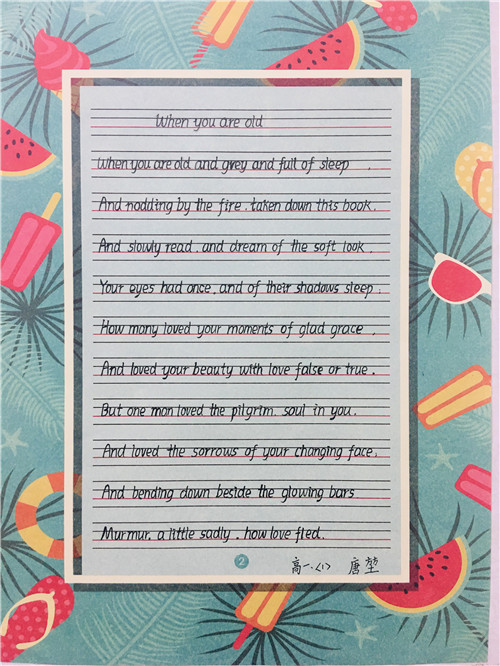 When you are old
When you are old and grey and full of sleep ,
And nodding by the fire . taken down this book .
And slowly read . and dream of the soft look .
Your eyes had once . and of their shadows sleep ;
How many loved your moments of glad grace ,
And loved your beauty with love false or true .
But one man loved the pilgrim . soul in you .
And loved the sorrows of your changing face .
And bending down beside the glowing bars
Murmur . a little sadly . how love fled .
2
高一.<1> 唐堃